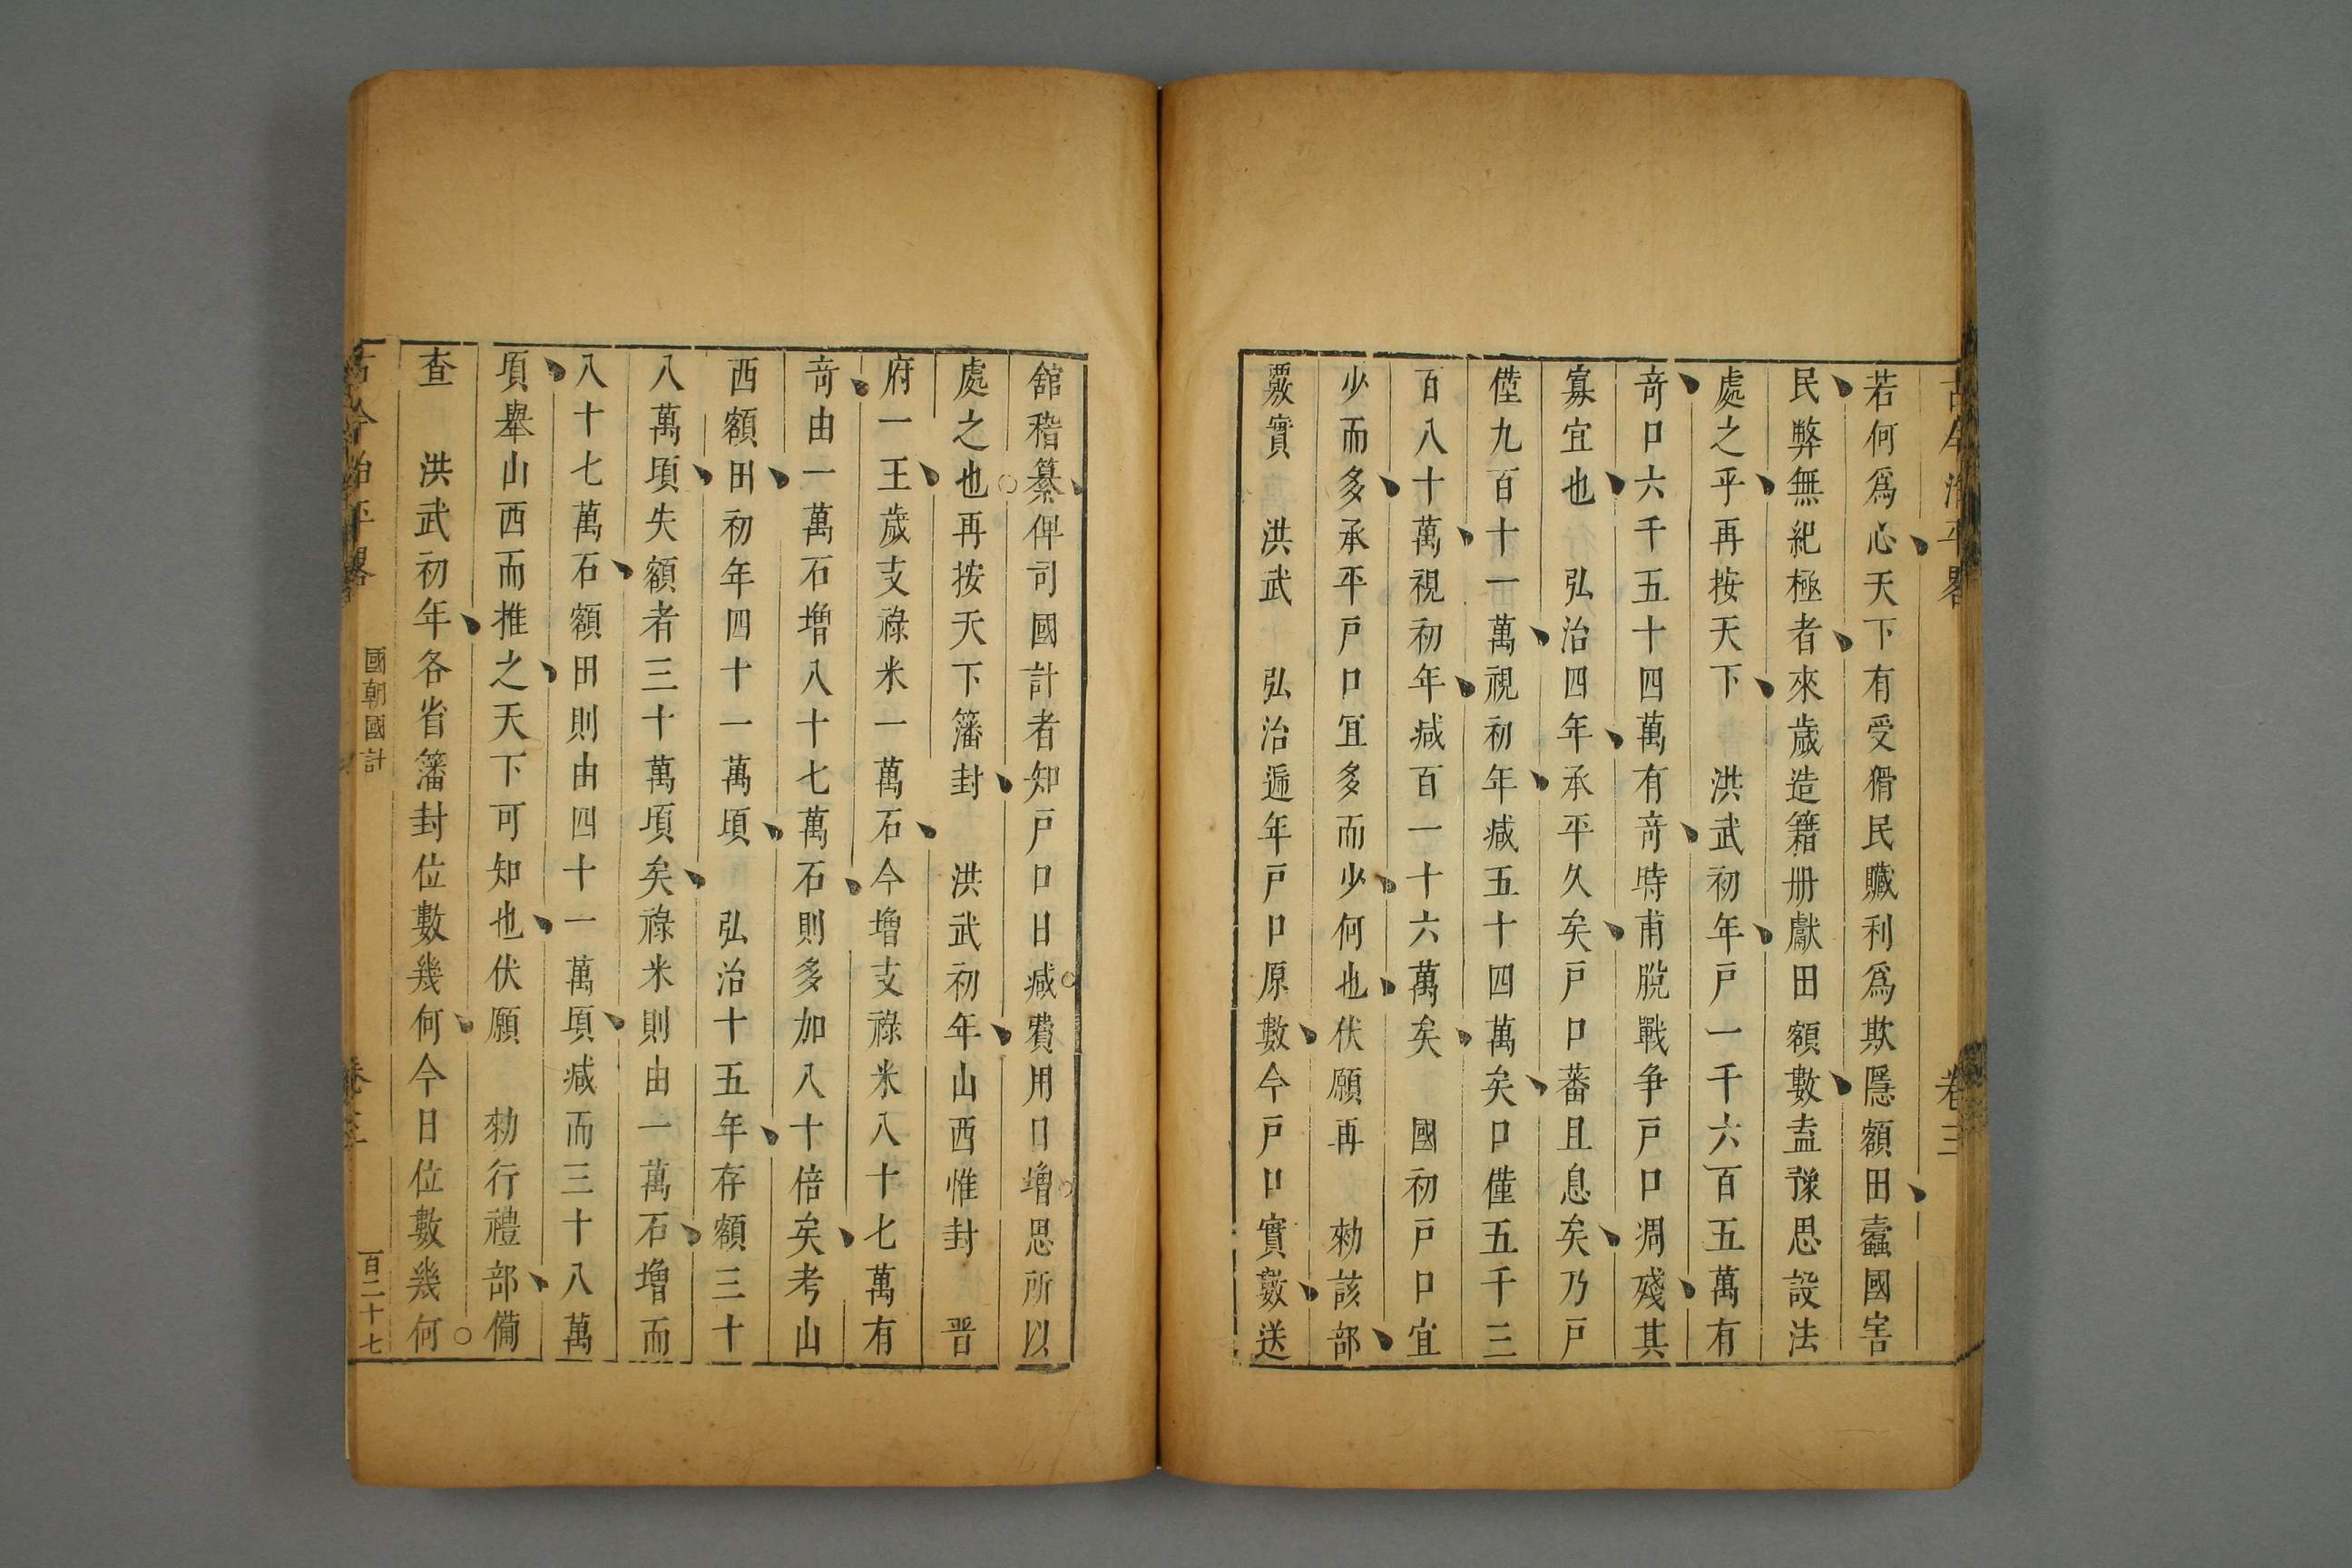 古今治平畧 卷三
若何爲心天下有受猾民贓利爲欺隱額田蠧國害
民弊無紀極者來歲造籍册獻田額數盍豫思設法
處之乎再按天下 洪武初年戸一千六百五萬有
竒口六千五十四萬有竒時甫脫戰争戸口凋殘其
寡宜也 弘治四年承平久矣戸口蕃且息矣乃戸
僅九百十一萬視初年减五十四萬矣口僅五千三
百八十萬視初年减百一十六萬矣 國初戸口宜
少而多承平戸口宜多而少何也伏願再 勑該部
覈實 洪武 弘治遞年戸口原數今戸口實數送
舘稽纂俾司國計者知戸口日减費用日增思所以
處之也再按天下籓封 洪武初年山西惟封 晋
府一王歲支祿米一萬石今增支祿米八十七萬有
竒由一萬石增八十七萬石則多加八十倍矣考山
西額田初年四十一萬頃 弘治十五年存額三十
八萬頃失額者三十萬頃矣祿米則由一萬石增而
八十七萬石額田則由四十一萬頃减而三十八萬
頃舉山西而推之天下可知也伏願 勑行禮部備
查 洪武初年各省籓封位數幾何今日位數幾何
古今治平畧 國朝國計 卷三 百二十七